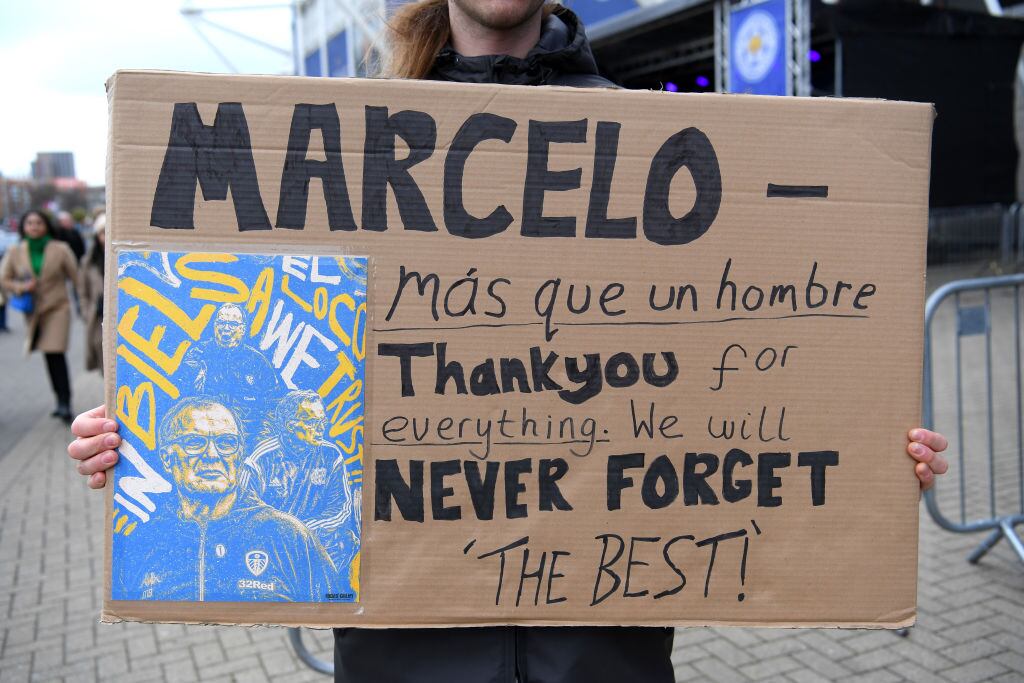 MARCELO –
Más que un hombre
Thankyou for
everything. We will
NEVER FORGET
'THE BEST!'
IN BIELSA
EL LOCO
WE TRUST!!
32Red